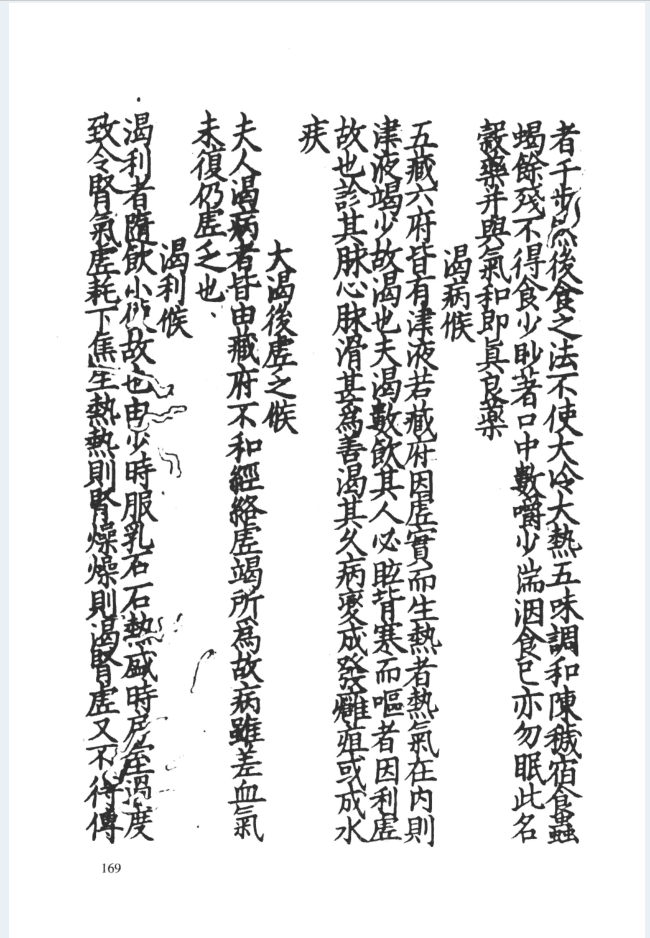 者千步然後食之法不使大冷大熱五味調和陳穢宿食蟲
蝎餘殘不得食少眇著口中數嚼少湍洇食已亦勿眠此名
穀藥并與氣和即真良藥
渴病候
五藏六府皆有津液若藏府因虛實而生熱者熱氣在內則
津液竭少故渴也夫渴數飲其人必眩背寒而嘔者因利虛
故也診其脉心脉滑甚為善渴其久病變成發癰疽或成水
疾
大渴後虛乏候
夫人渴病者皆由藏府不和經絡虛竭所為故病雖差血氣
未復仍虛乏也
渴利候
渴利者隨飲小便故也由少時服乳石石熱盛時房室過度
致令腎氣虛耗下焦生熱熱則腎燥燥則渴腎虛又不得傳
169